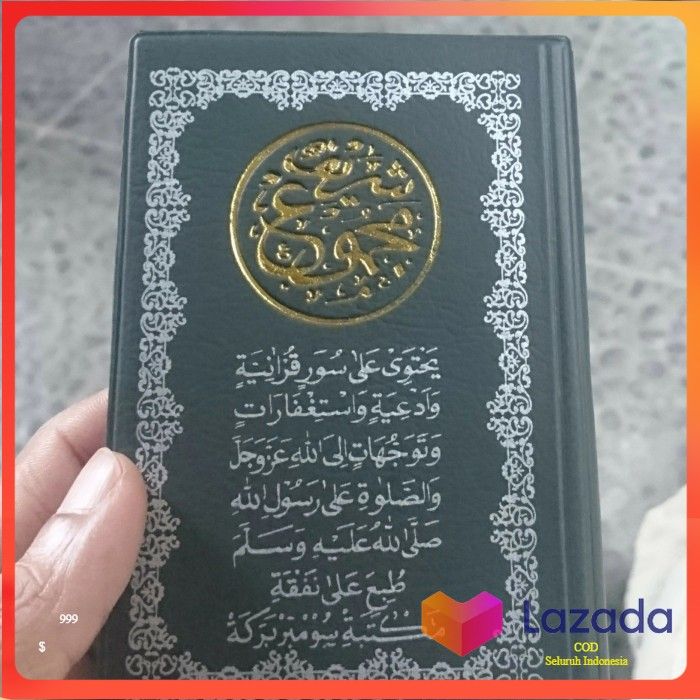 مجموع شريف
يَحْتَوِىْ عَلٰى سُوَرٍ قُرْاٰنِيَةٍ
وَاَدْعِيَةٍ وَاسْتِغْفَارَاتٍ
وَتَوَجُّهَاتٍ اِلَى اللهِ عَزَّوَجَلَّ
وَالصَّلٰوةِ عَلٰى رَسُوْلِ اللهِ
صَلَّى اللهُ عَلَيْهِ وَسَلَّمَ
طُبِعَ عَلٰى نَفَقَةِ
مكتبة سومبر بركة
Lazada
COD
Seluruh Indonesia
999
$